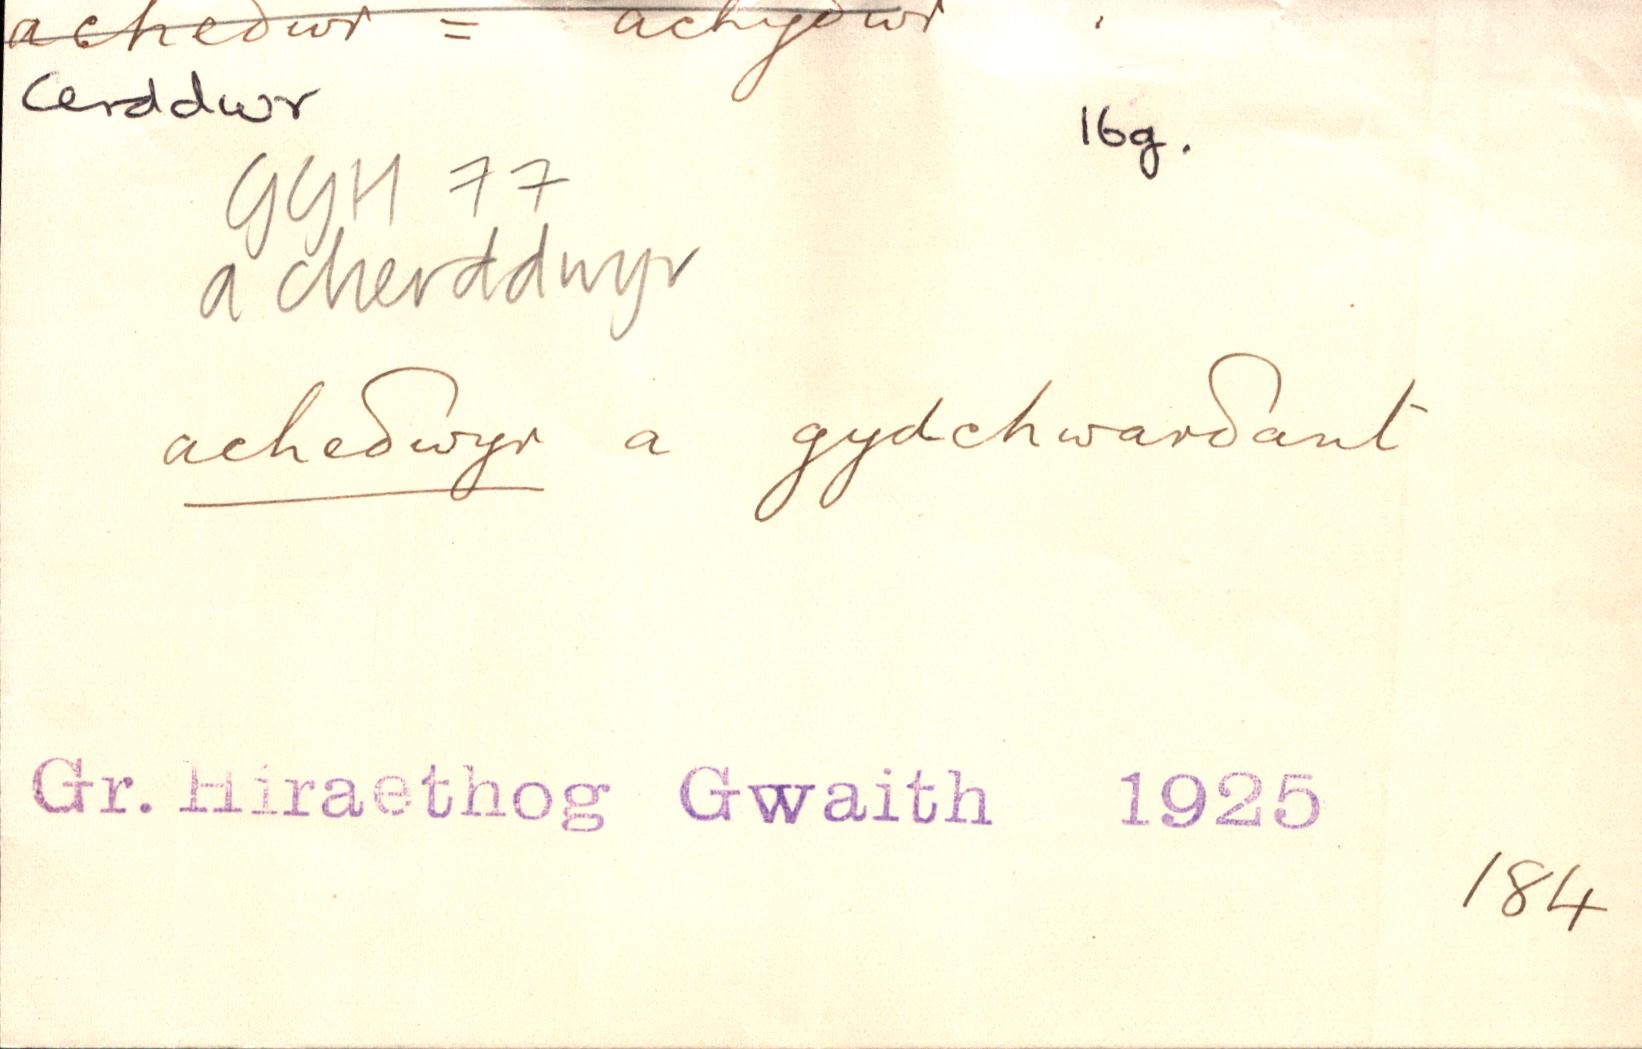 acheδwr = achyδwr
Cerddwr
16g.
GGH 77
a cherddwyr
acheδwyr a gydchwarδant
Gr. Hiraethog Gwaith 1925
184